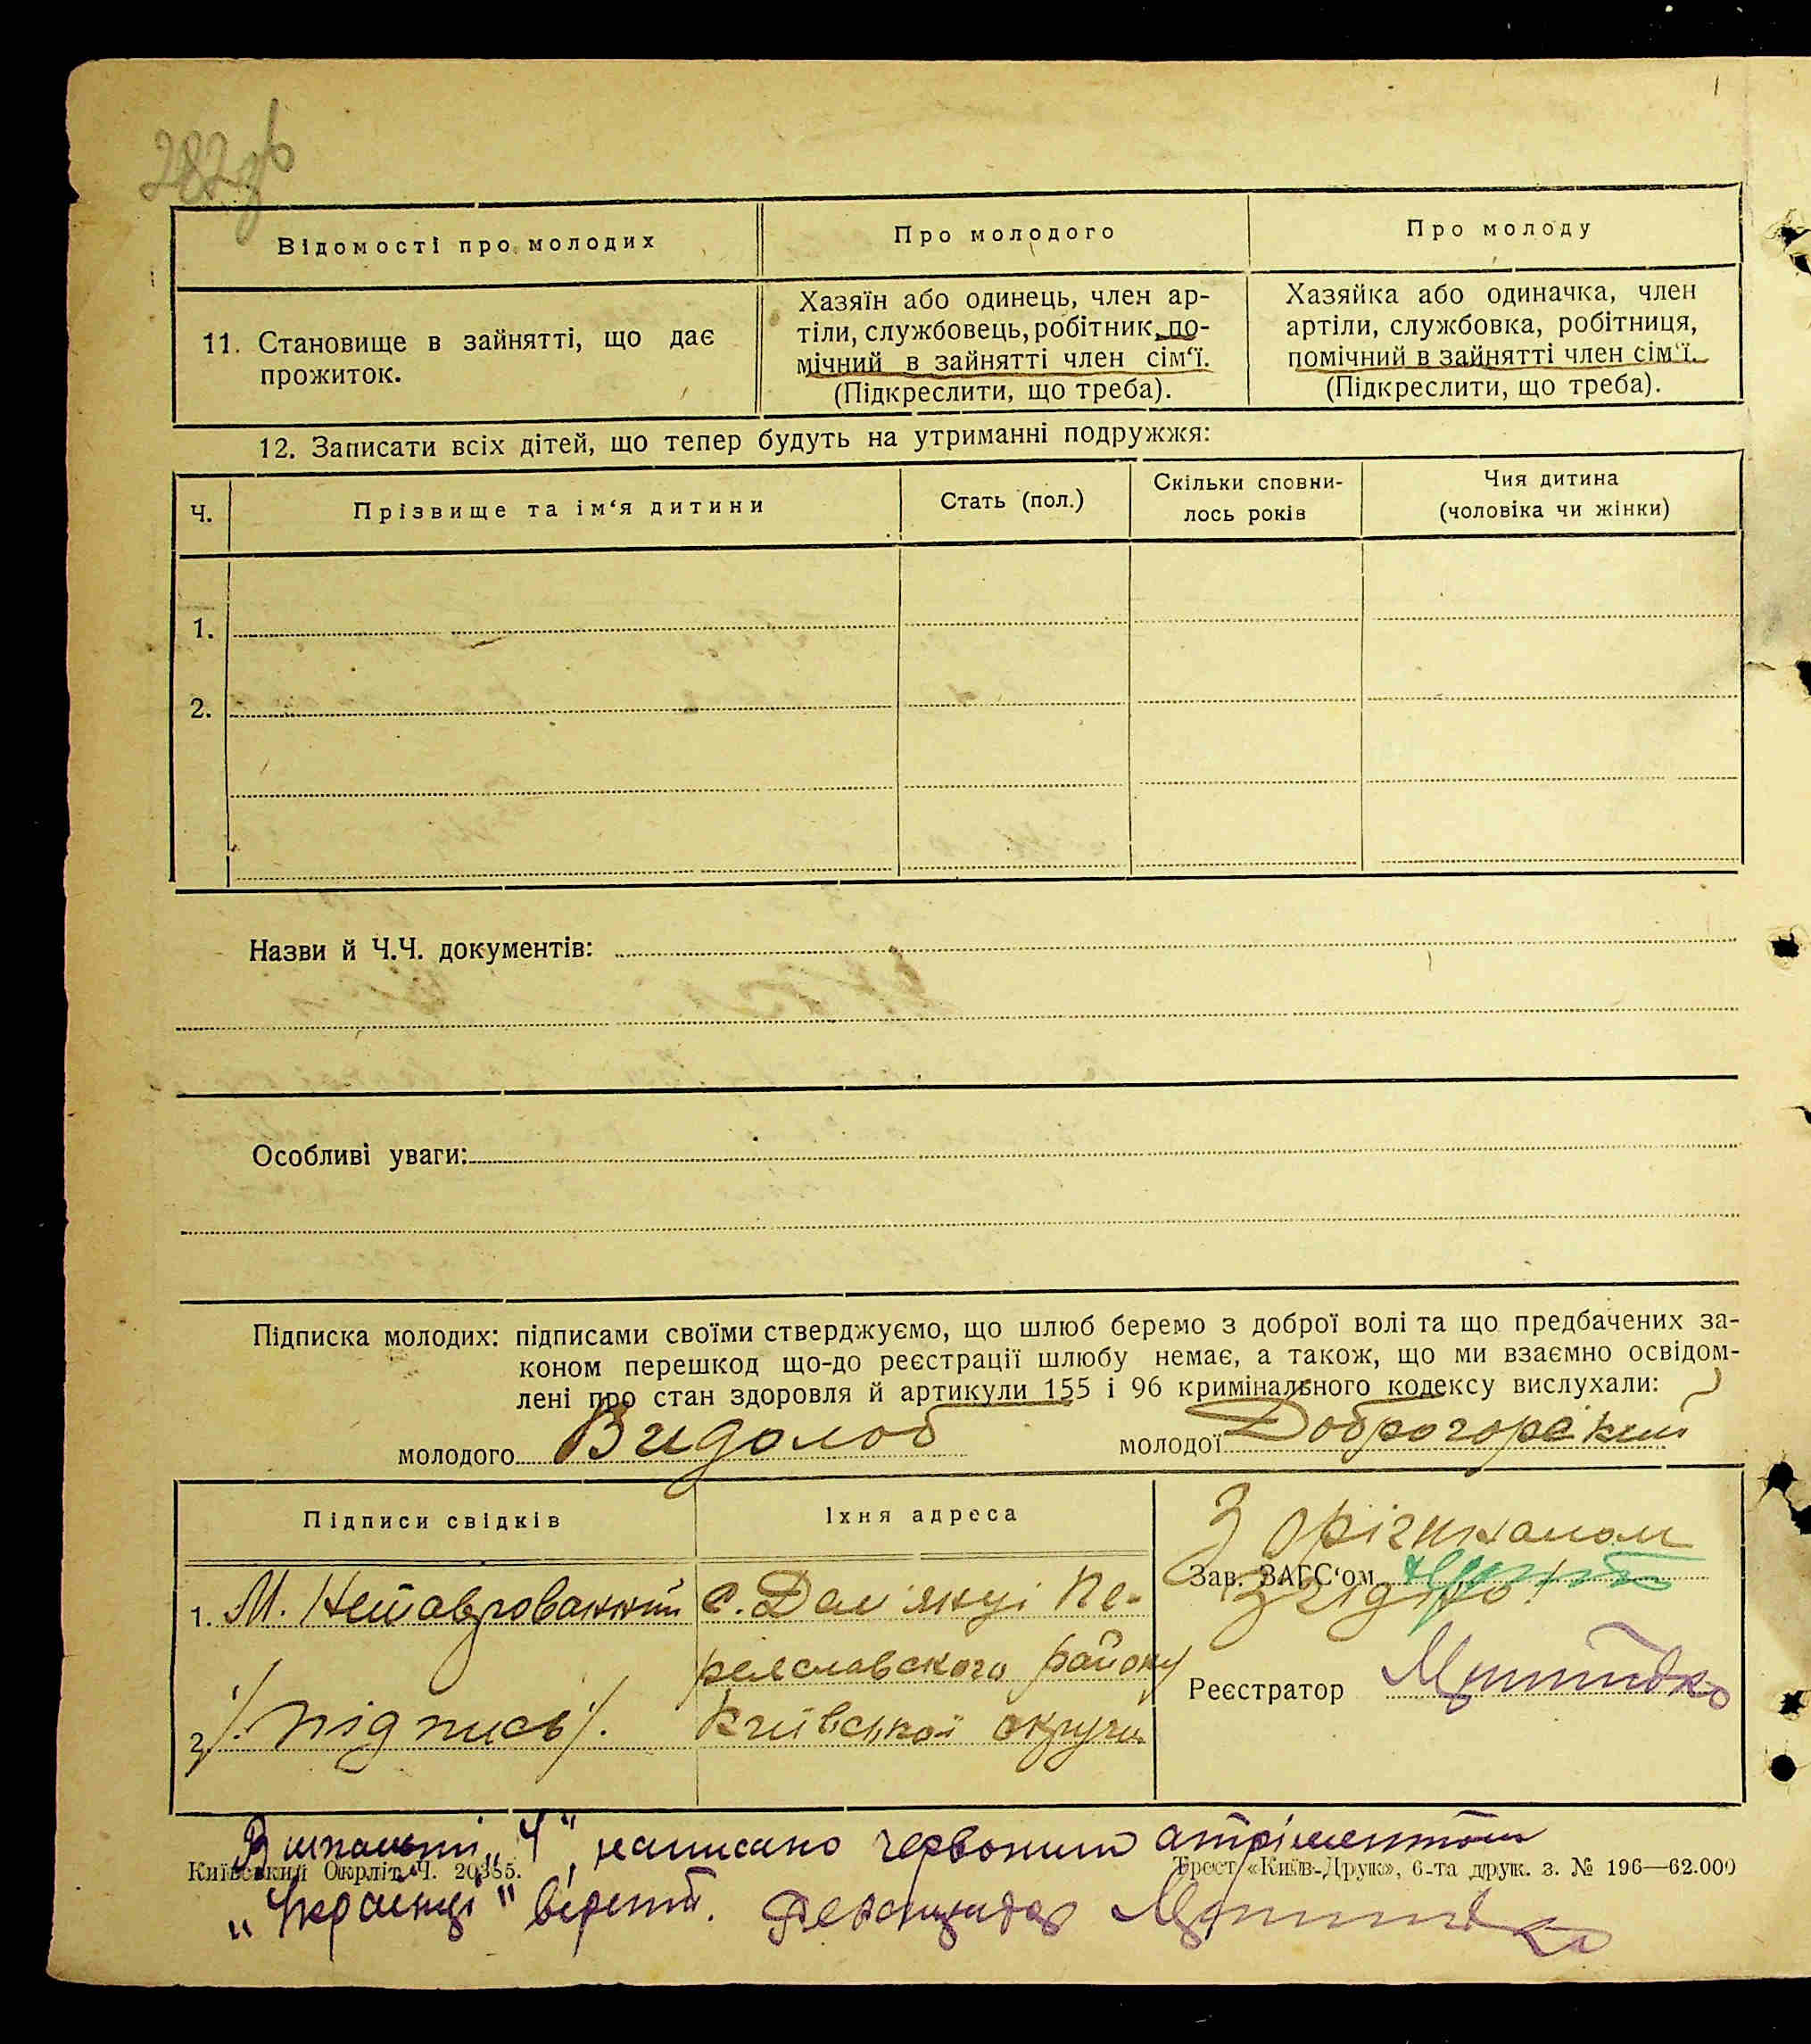 282зв
Відомості про молодих
Про молодого
Про молоду
11. Становище в зайнятті, що дає
прожиток.
Хазяїн або одинець, член ар-
тіли, службовець, робітник, по-
мічний в зайнятті член сім‘ї.
(Підкреслити, що треба).
Хазяйка або одиначка, член
артіли, службовка, робітниця,
помічний в зайнятті член сім‘ї.
(Підкреслити, що треба).
12. Записати всіх дітей, що тепер будуть на утриманні подружжя:
Ч.
Прізвище та ім‘я дитини
Стать (пол.)
Скільки сповни-
лось років
Чия дитина
(чоловіка чи жінки)
1.
2.
Назви й Ч.Ч. документів:
Особливі уваги:
Підписка молодих: підписами своїми стверджуємо, що шлюб беремо з доброї волі та що предбачених за-
коном перешкод що-до реєстрації шлюбу немає, а також, що ми взаємно освідом-
лені про стан здоровля й артикули 155 і 96 кримінального кодексу вислухали:
молодого Видолоб
молодої Доброгорський
Підписи свідків
Їхня адреса
З орігиналом
Зав. ЗАГС‘ом
згідно!
1. М. с. Дем'янці Пе-
реяславского району
Реєстратор
2. /підпись/. Київської округи
"4" написано червоним атріментом
Київський Окрліт Ч. 20355.
Трест «Київ-Друк», 6-та друк. з. № 196—62.000
"Українці" вірити.